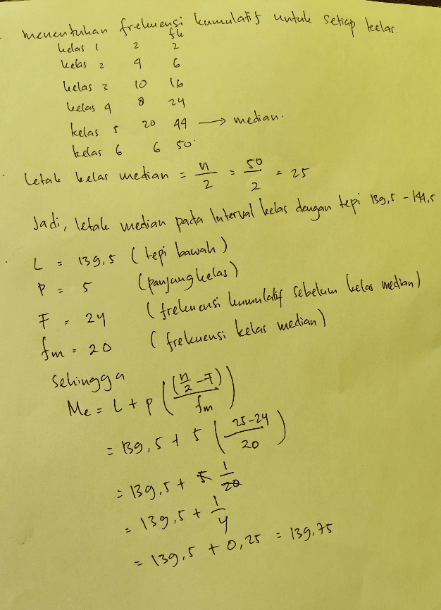 menentukan frekuensi kumulatif untuk setiap kelas.
fk
kelas 1 2 2
kelas 2 4 6
kelas 3 10 16
kelas 4 8 24
kelas 5 20 44 → median.
kelas 6 6 50
Letak kelas median = n/2 = 50/2 = 25
Jadi, letak median pada Interval kelas dengan tepi 139,5 - 144,5
L = 139,5 (tepi bawah)
P = 5 (panjang kelas)
F = 24 (frekuensi kumulatif sebelum kelas median)
fm = 20 (frekuensi kelas median)
Sehingga
Me = L + p ((n/2 - F)/fm)
= 139,5 + 5 (25-24/20)
= 139,5 + 5 1/20
= 139,5 + 1/4
= 139,5 + 0,25 = 139,75